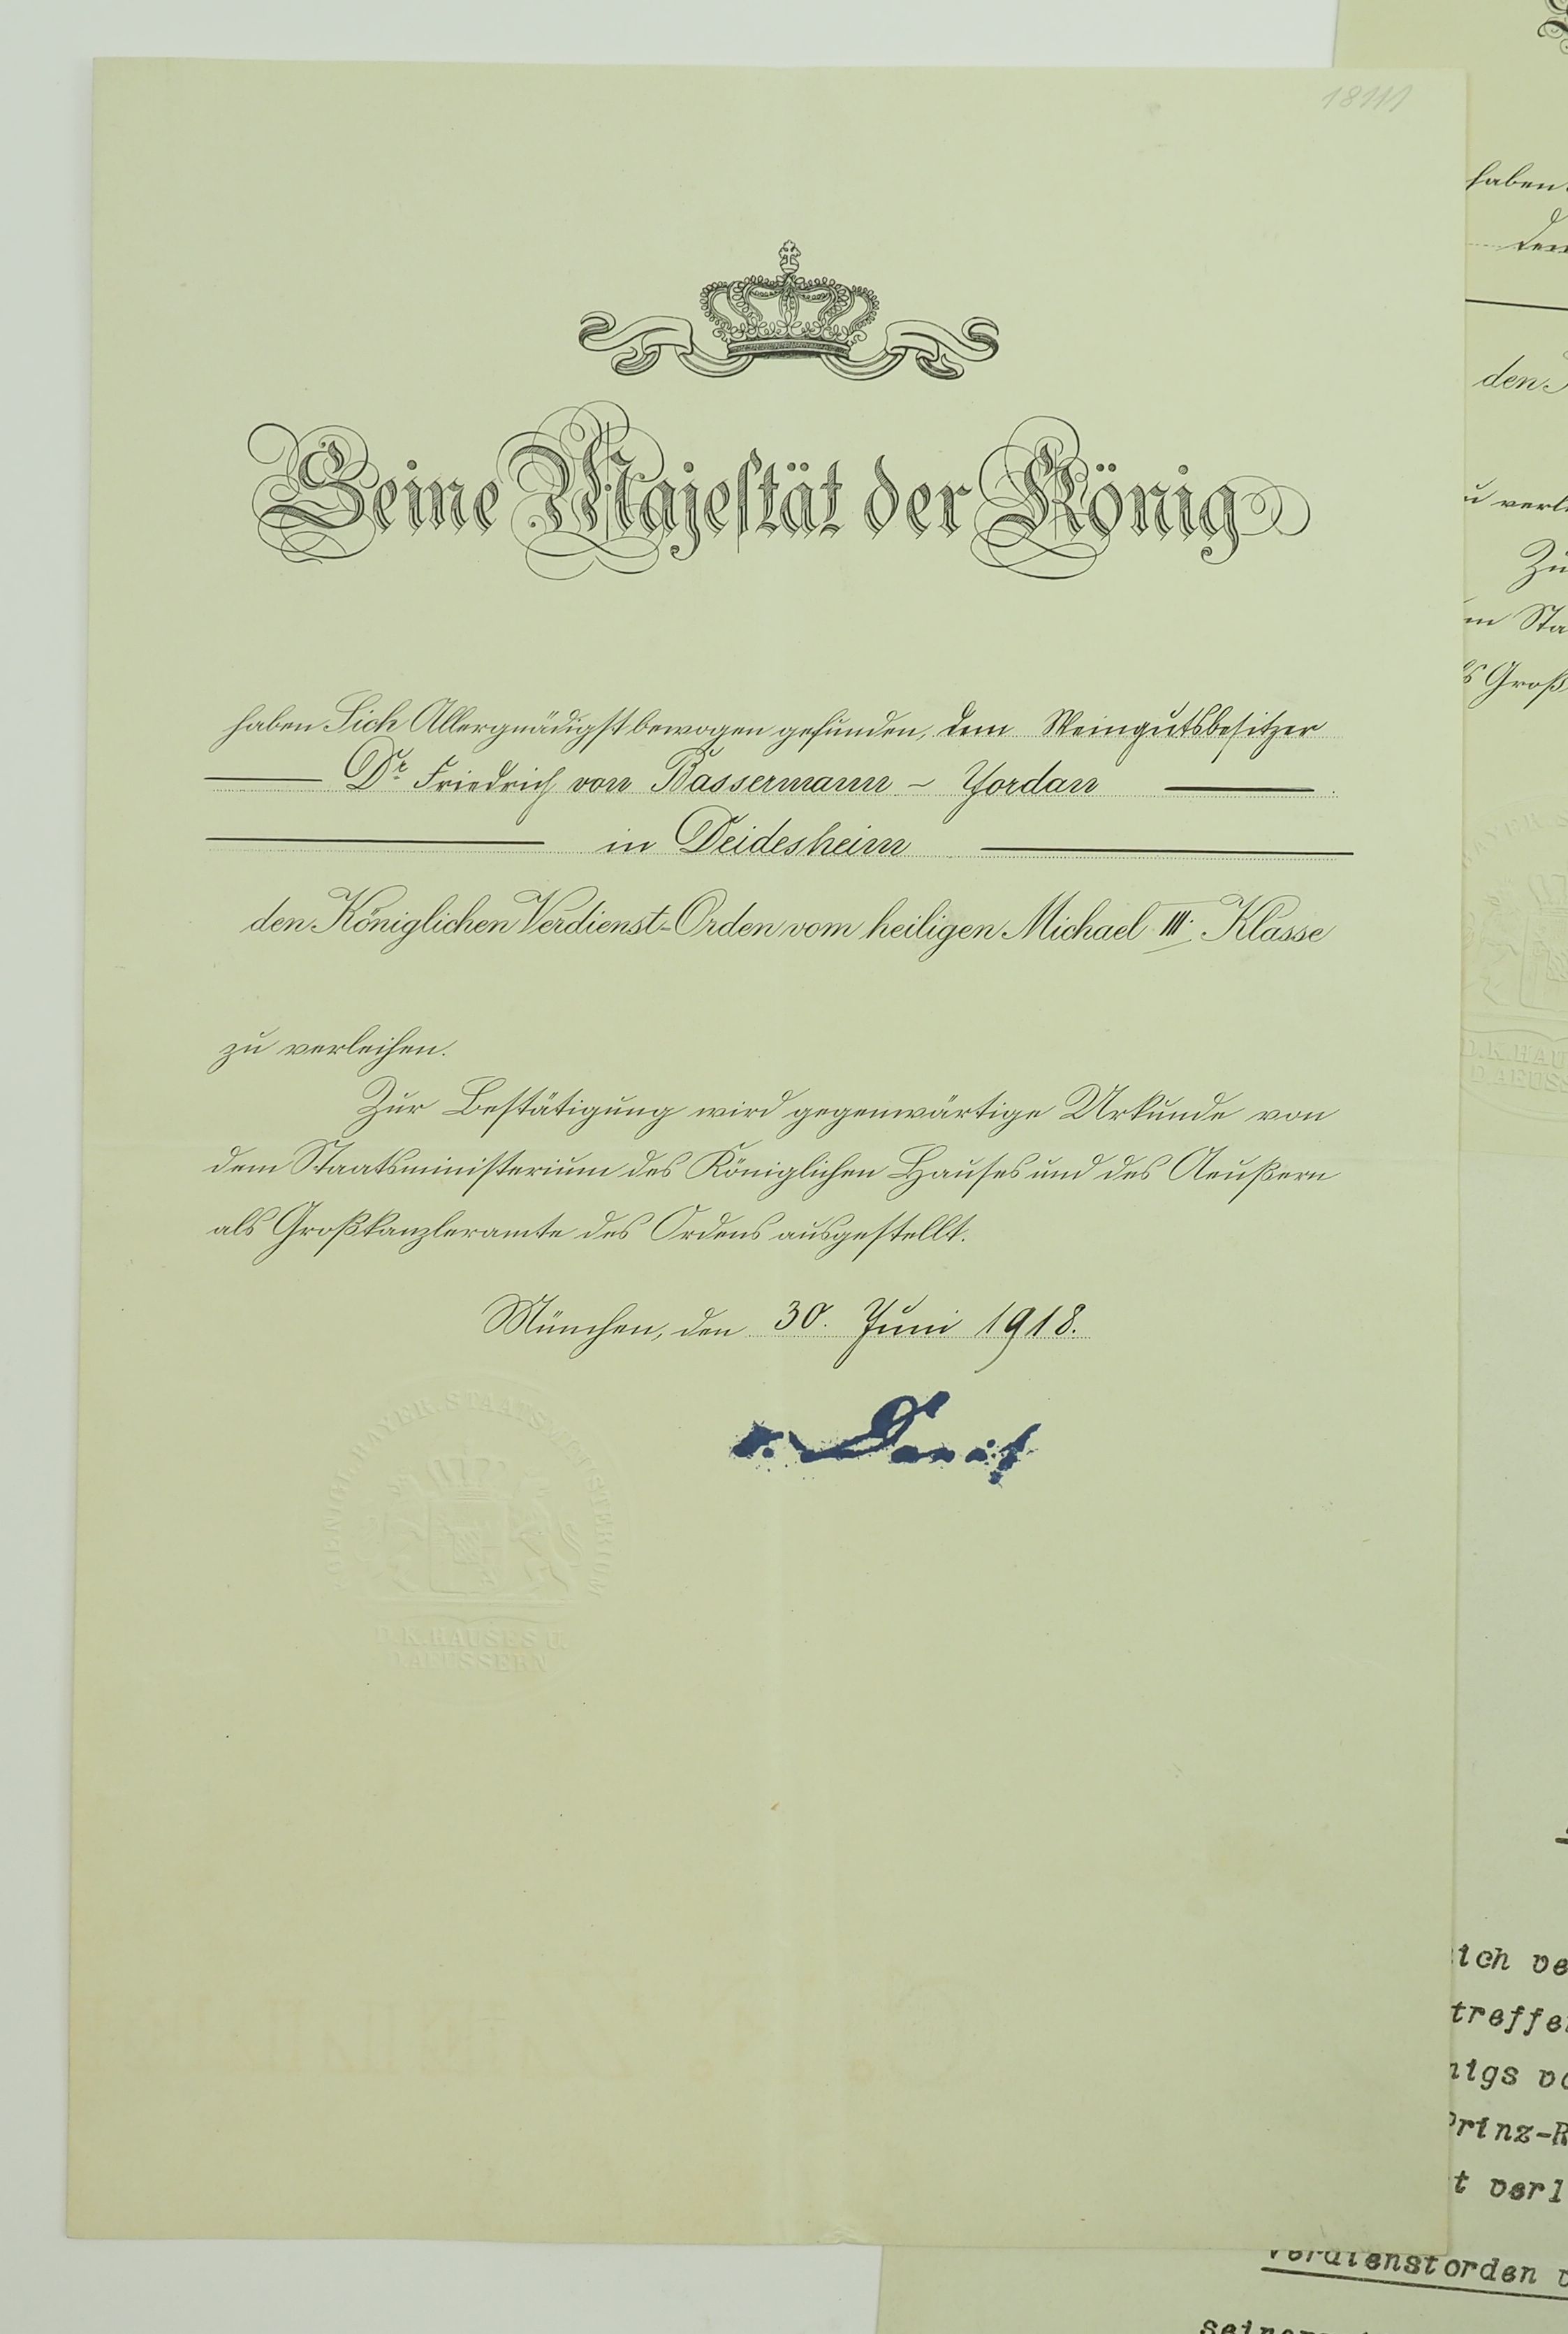 18111
Seine Majestät der König
haben Sich Allergnädigst bewogen gefunden, dem Weingutsbesitzer
Dr. Friedrich von Bassermann - Jordan
in Deidesheim
den Königlichen Verdienst-Orden vom heiligen Michael III. Klasse
zu verleihen.
Zur Bestätigung wird gegenwärtige Urkunde von
dem Staatsministerium des Königlichen Hauses und des Aeußern
als Großkanzleramte des Ordens ausgestellt.
München, den 30. Juni 1918.
KOENIGL. BAYER. STAATS-MINISTERIUM
D. K. HAUSES U.
D. AEUSSERN
haben
dem
den
u verl
Zu
m Sta
s Groß
BAYER. S
D. K. HAU
D. AEUSS
ich ve
treffe
nigs vo
Prinz-R
t verl
Verdienstorden v
seiner